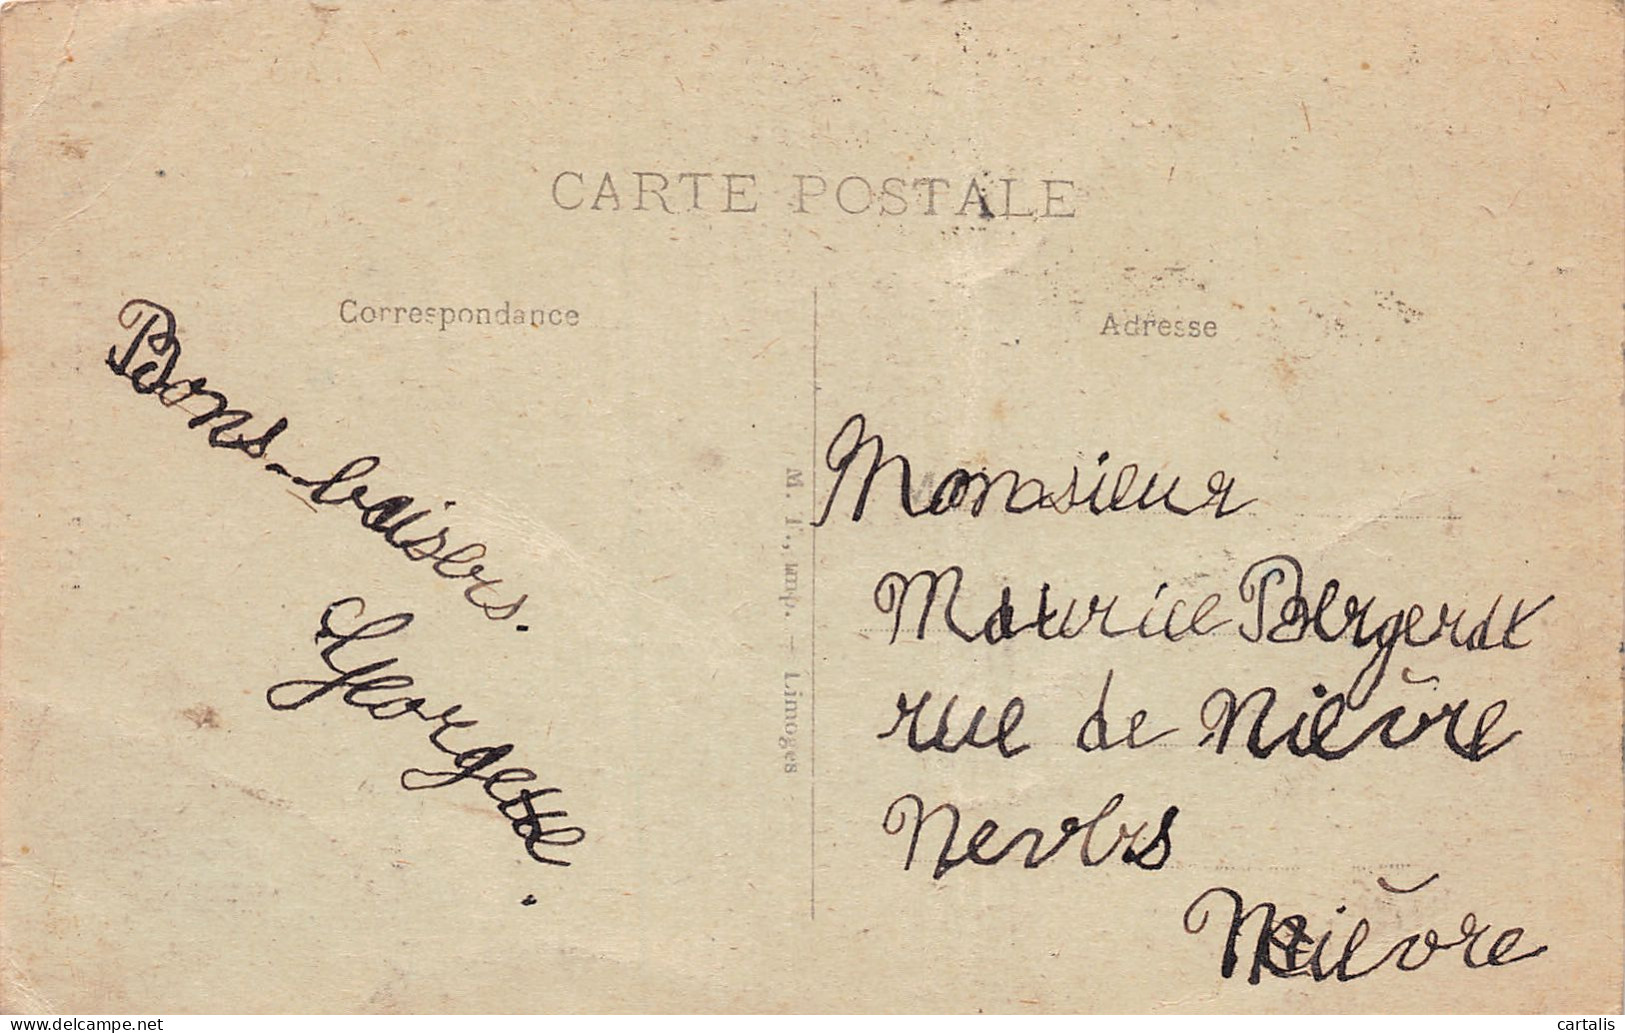 CARTE POSTALE
Correspondance
Bons-baisers.
Georgette.
M. T., imp. — Limoges
Adresse
Monsieur
Maurice
rue de Nièvre
Nevers
Nièvre
www.delcampe.net
cartalis